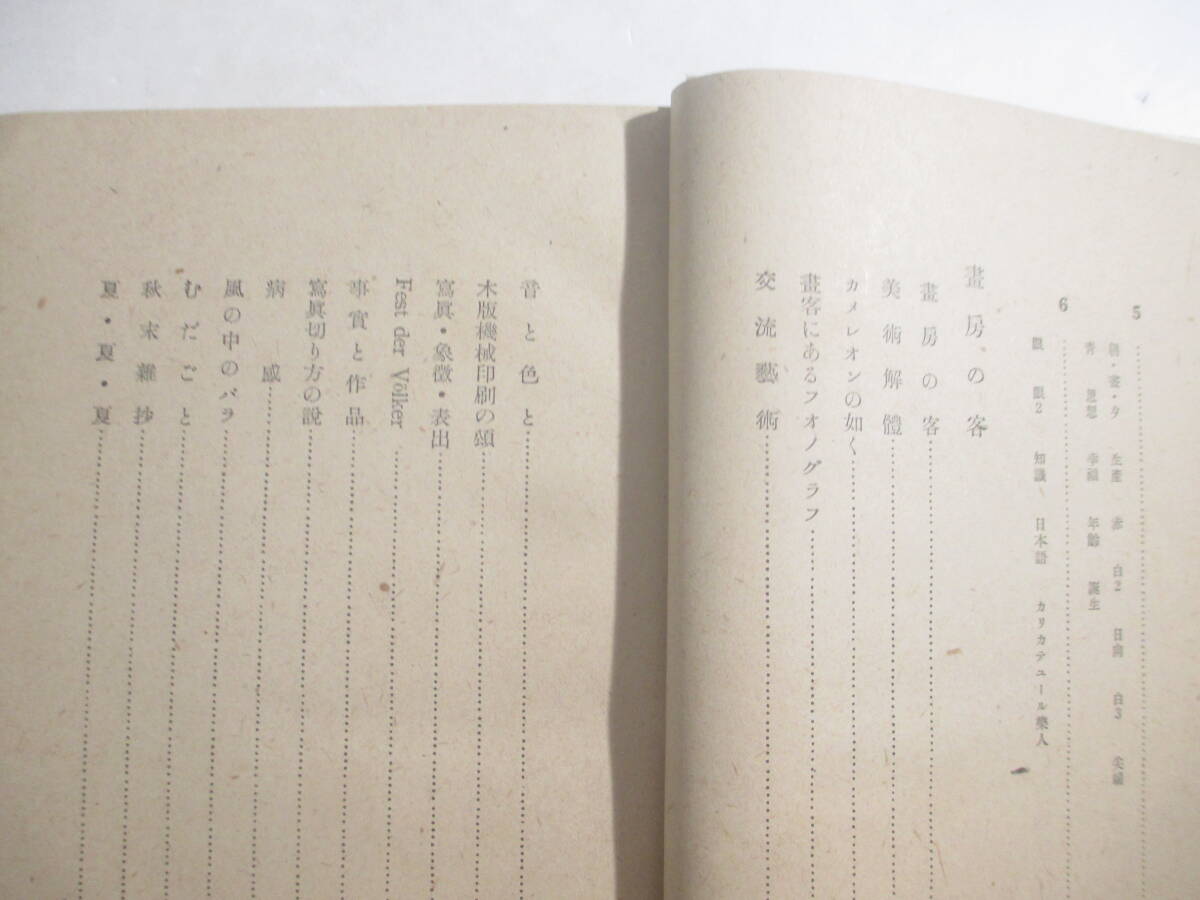 5
朝・晝・夕 生產 赤 白2 日向 白3 尖端
靑 思想 幸福 年齡 誕生
6
眼 眼2 知識 日本語 カリカテユール樂人
畫房の客
畫房の客
美術解體
カメレオンの如く
畫客にあるフオノグラフ
交流藝術
音と色と
木版機械印刷の頌
寫眞・象徵・表出
Fest der Völker
事實と作品
寫眞切り方の說
病感
風の中のバラ
むだごと
秋末雜抄
夏・夏・夏